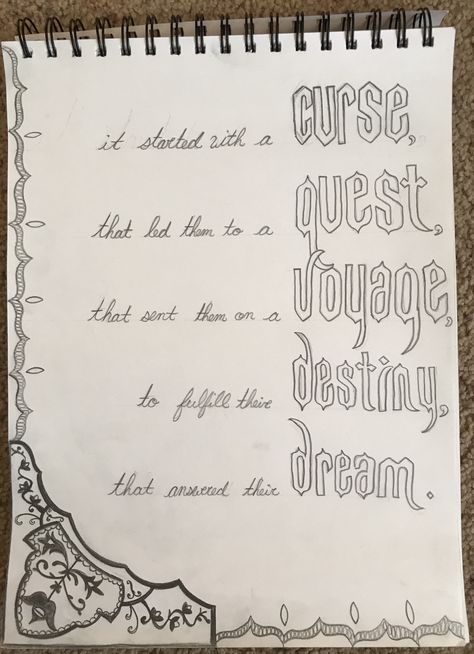 it started with a curse,
that led them to a quest,
that sent them on a voyage,
to fulfill their destiny,
that answered their dream.